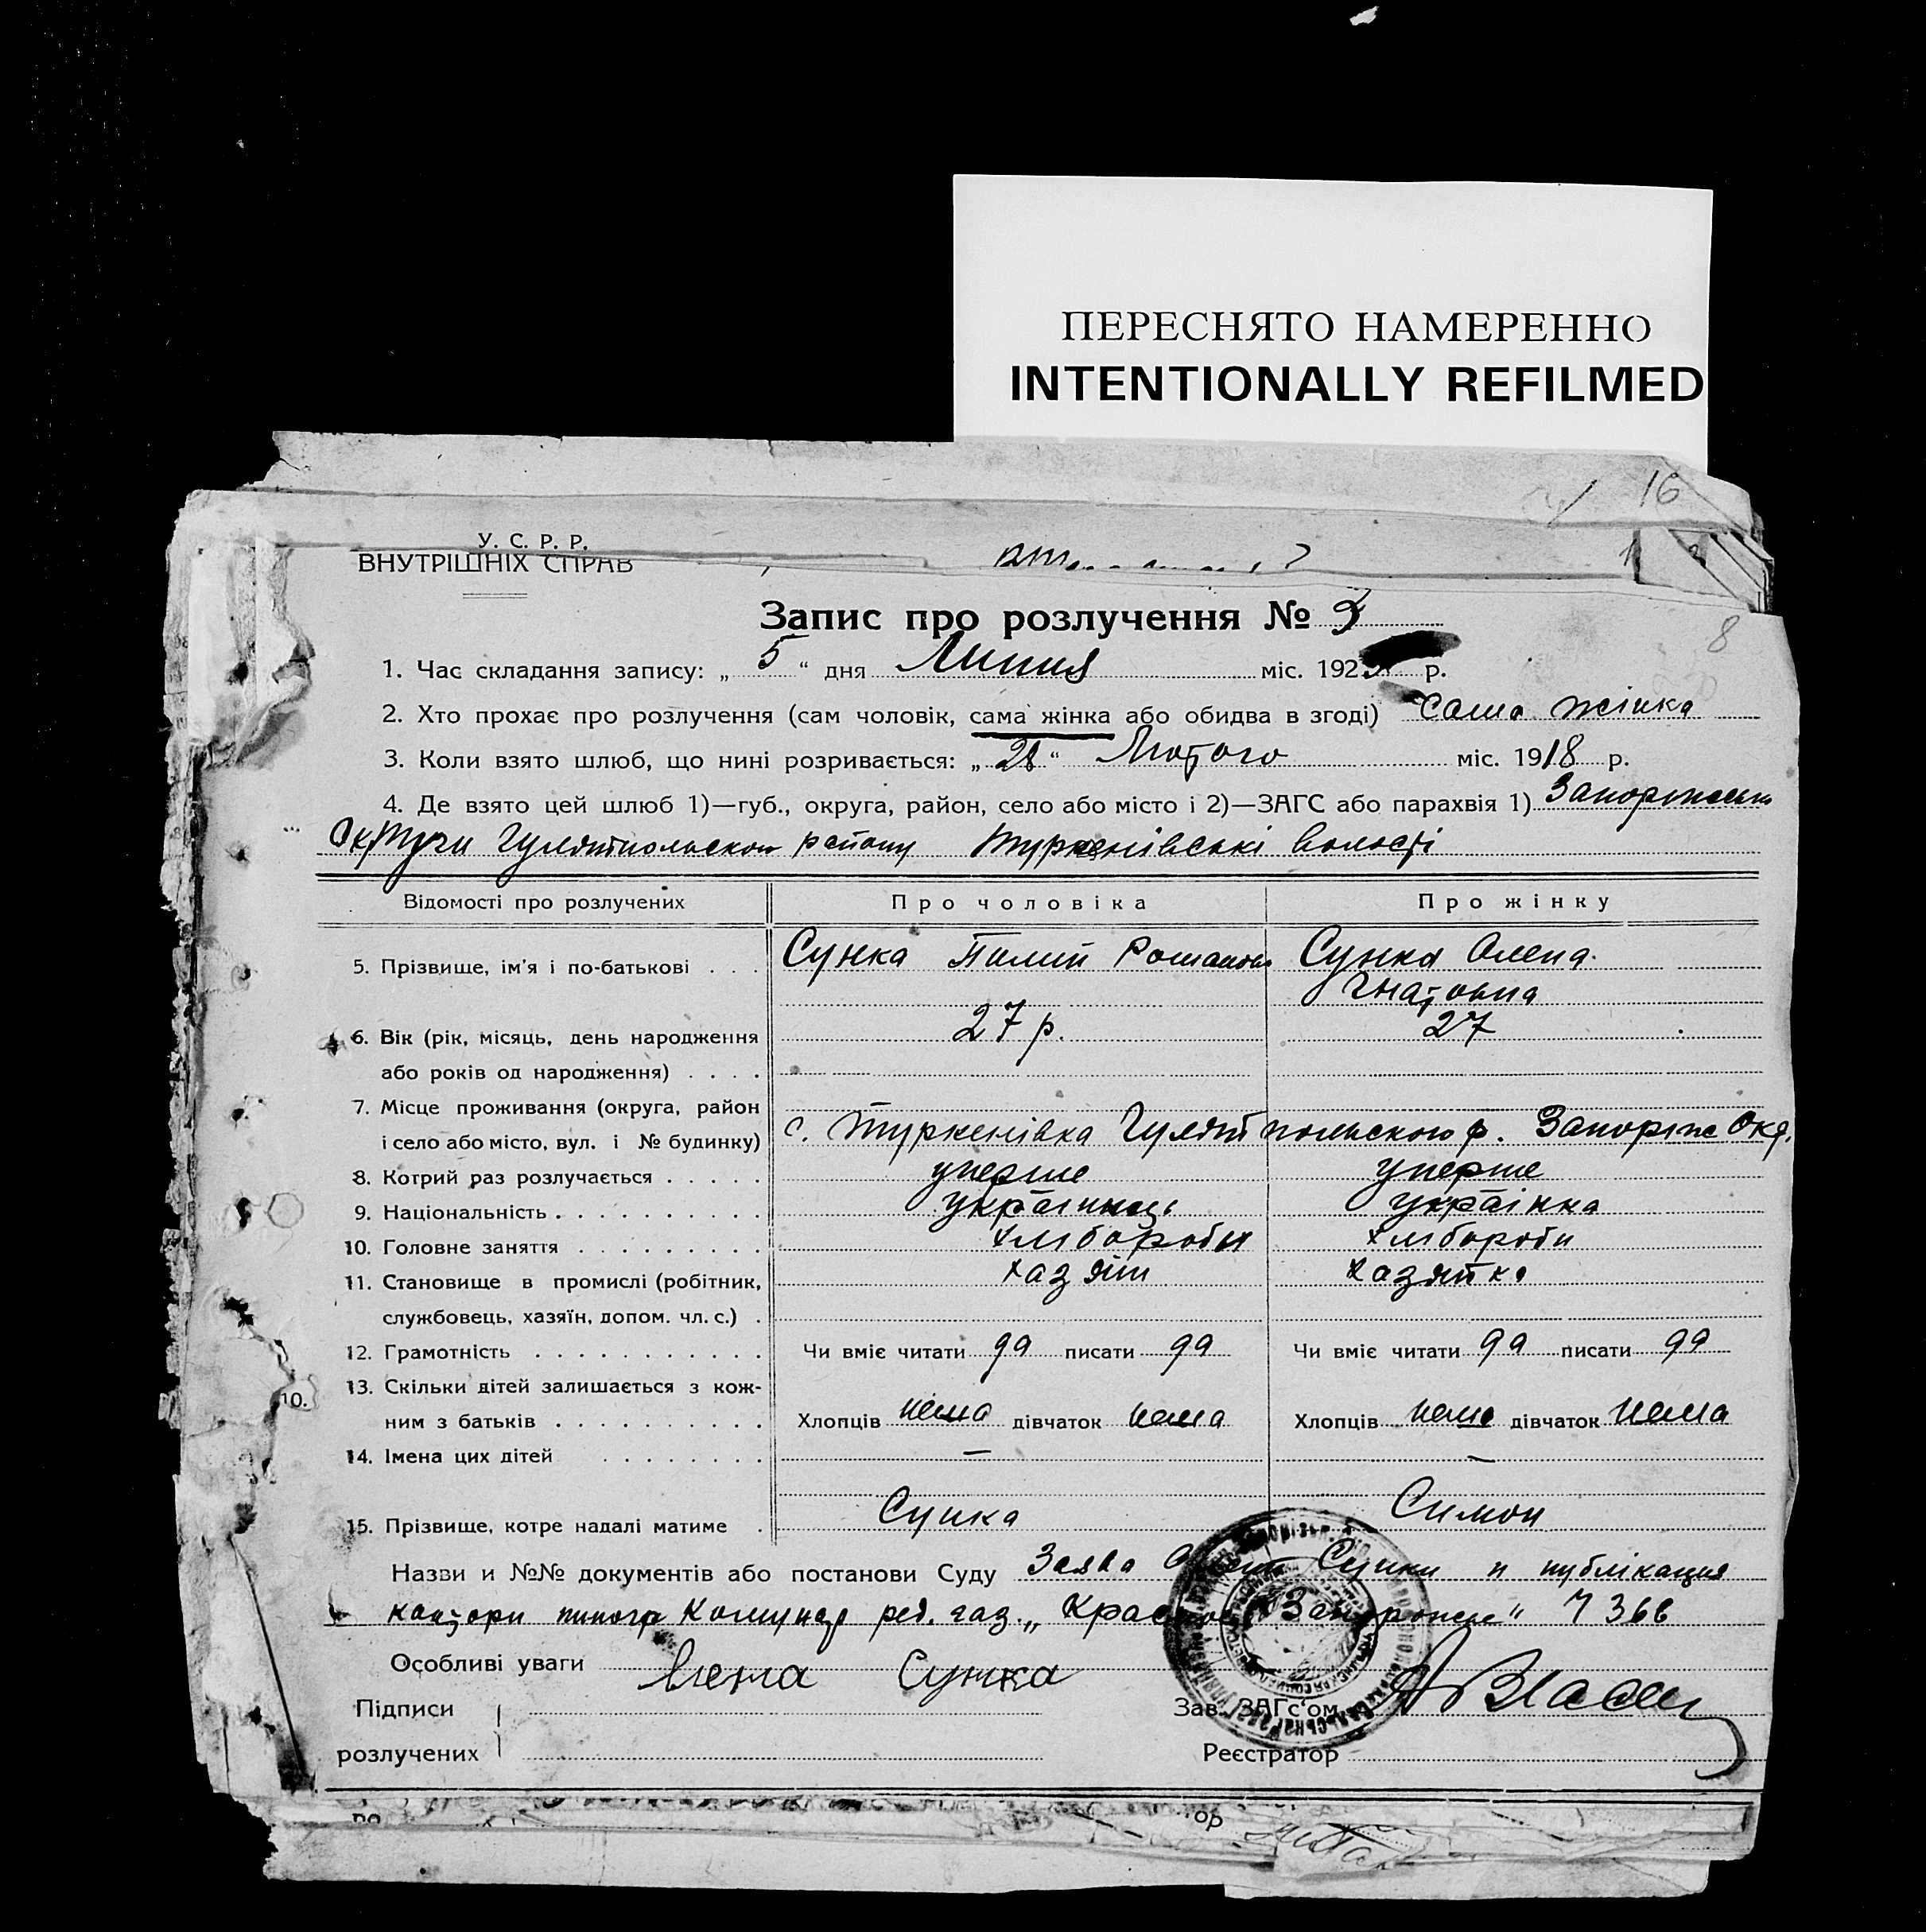 ПЕРЕСНЯТО НАМЕРЕННО
INTENTIONALLY REFILMED
16
У. С. Р. Р.
ВНУТРІШНІХ СПРАВ
8
Запис про розлучення № 3
1. Час складання запису: „ 5 “ дня Липня міс. 192 р.
2. Хто прохає про розлучення (сам чоловік, сама жінка або обидва в згоді) сама жінка
3. Коли взято шлюб, що нині розривається: „ 28 “ Лютого міс. 1918 р.
4. Де взято цей шлюб 1)—губ., округа, район, село або місто і 2)—ЗАГС або парахвія 1)
Округи Гуляйпольского району Туркенівські волості
Відомості про розлучених Про чоловіка Про жінку
5. Прізвище, ім'я і по-батькові . . . Сунка Романов Сунка Олена
Гнатовна
6. Вік (рік, місяць, день народження 27 р. 27
або років од народження) . . . .
7. Місце проживання (округа, район
і село або місто, вул. і № будинку) с. Туркенівка Гуляйпольского р. Запоріж Окр.
8. Котрий раз розлучається . . . . . уперше уперше
9. Національність . . . . . . . . . . українець українка
10. Головне заняття . . . . . . . . . хлібороби хлібороби
11. Становище в промислі (робітник, хазяїн хазяйка
службовець, хазяїн, допом. чл. с.) .
12. Грамотність . . . . . . . . . . . Чи вміє читати да писати да Чи вміє читати да писати да
13. Скільки дітей залишається з кож-
10.
ним з батьків . . . . . . . . . . Хлопців нема дівчаток нема Хлопців нема дівчаток нема
14. Імена цих дітей . . . . . . . . — —
15. Прізвище, котре надалі матиме . Сунка Симон
Назви и №№ документів або постанови Суду Заява Сунки и публікация
контори ред. газ. „Красное Запорожье“
Особливі уваги
Сунка
Підписи Зав. ЗАГс'ом
розлучених Реєстратор
ро ор